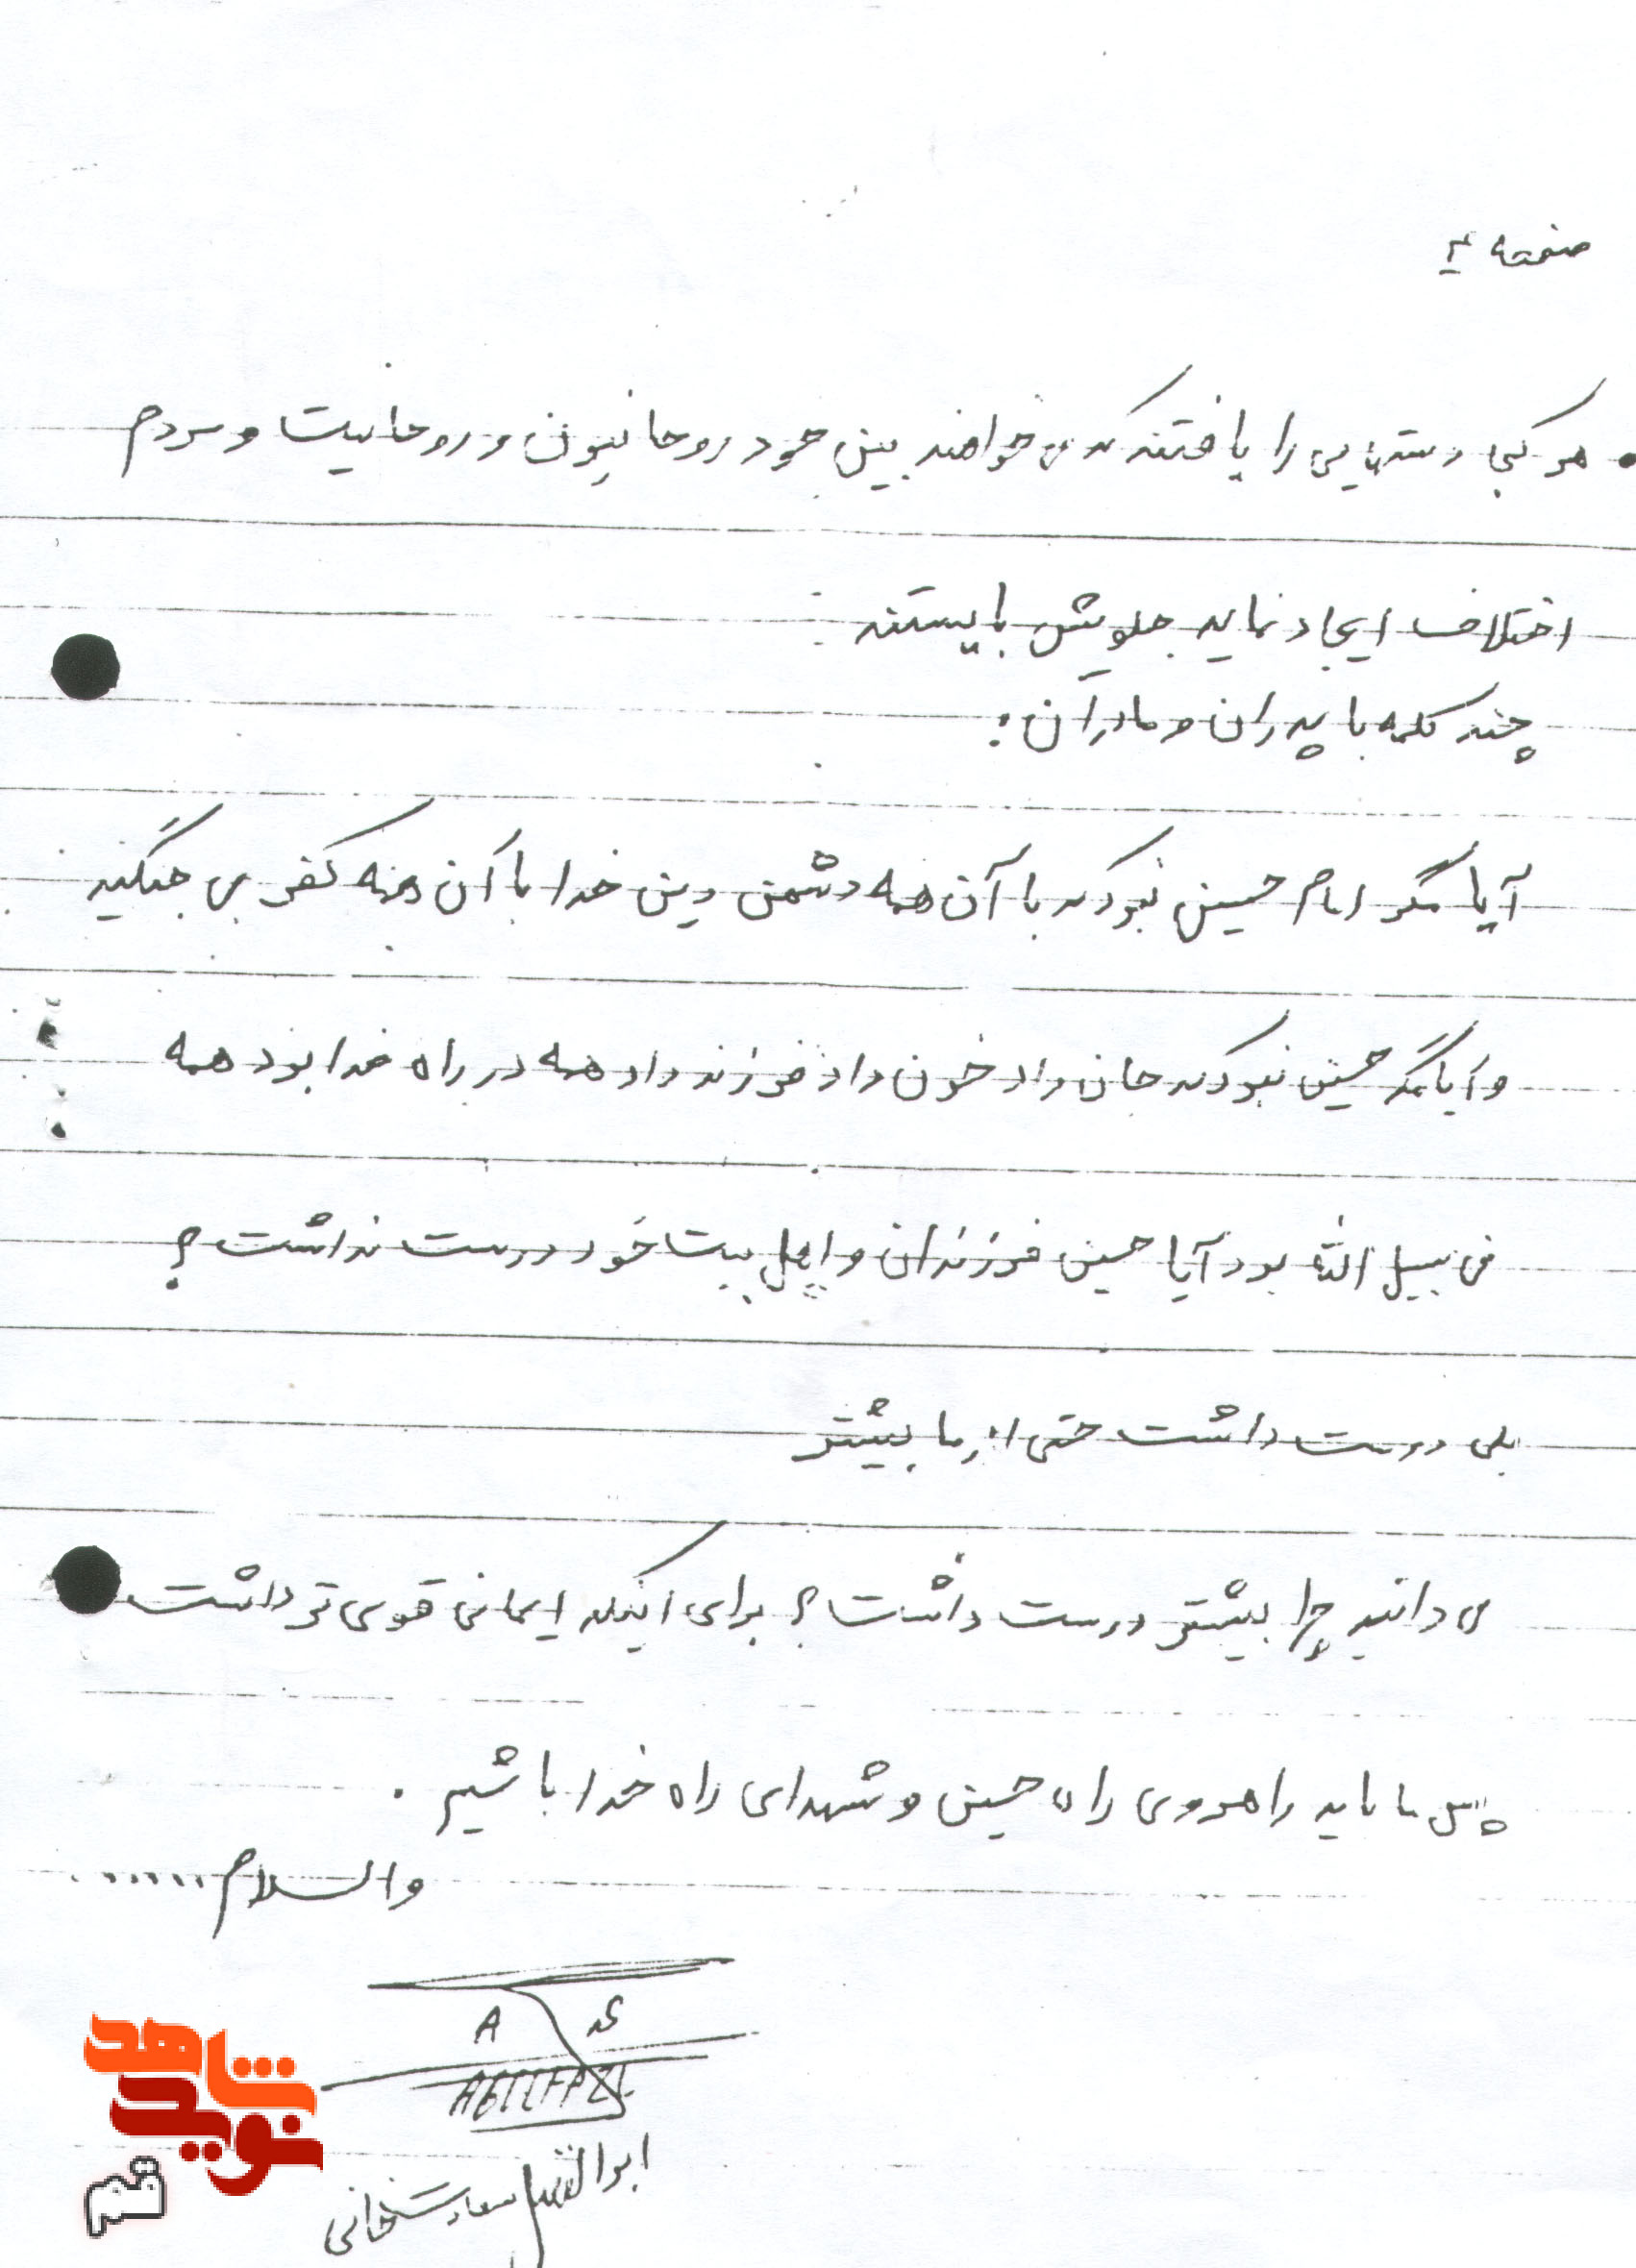 صفحه ۴
• هر کجا دستهایی را یافتند که می خواهند بین خود روحانیون و روحانیت و مردم
اختلاف ایجاد نماید جلویش بایستند
چند کلمه با پدران و مادران:
آیا مگر امام حسین نبود که با آن همه دشمن دین خدا با آن همه کفر می جنگید
و آیا مگر حسین نبود که جان داد خون داد فرزند داد همه در راه خدا بود همه
فی سبیل الله بود آیا حسین فرزندان و اهل بیت خود دوست نداشت؟
بلی دوست داشت حتی از ما بیشتر
می دانید چرا بیشتر دوست داشت؟ برای اینکه ایمانی قوی تر داشت
پس ما باید راهروی راه حسین و شهدای راه خدا باشیم.
والسلام ......
A S
ابوالفضل سعادتخانی
شاهد
نوید
قم